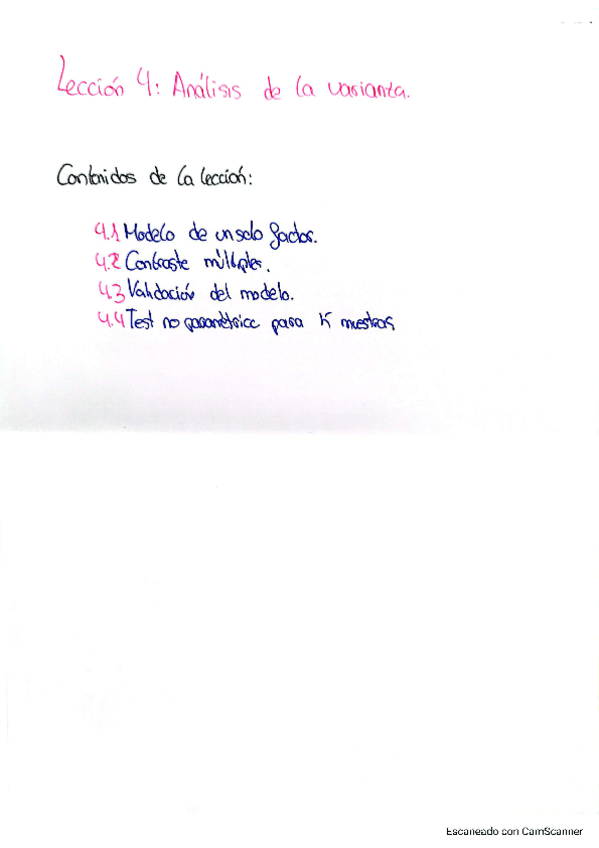 Lección 4: Análisis de la varianza.
Contenidos de la lección:
4.1 Modelo de un solo factor.
4.2 Contraste múltiples.
4.3 Validación del modelo.
4.4 Test no paramétrico para K muestras
Escaneado con CamScanner